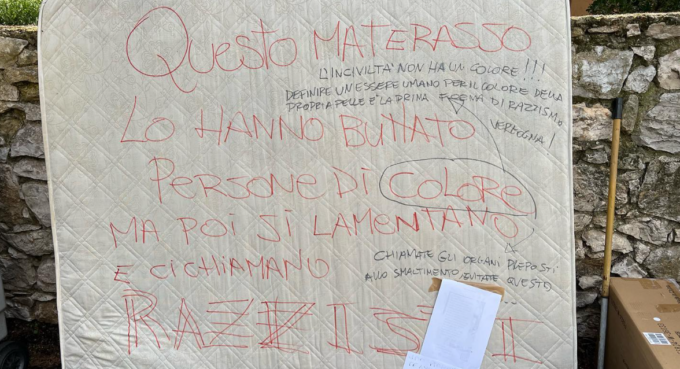 QUESTO MATERASSO
L'INCIVILTA' NON HA UN COLORE!!!
DEFINIRE UN ESSERE UMANO PER IL COLORE DELLA
PROPRIA PELLE E' LA PRIMA FORMA DI RAZZISMO
VERGOGNA!
LO HANNO BUTTATO
PERSONE DI COLORE
MA POI SI LAMENTANO
E CI CHIAMANO
CHIAMATE GLI ORGANI PREPOSTI
ALLO SMALTIMENTO, EVITATE QUESTO
...
RAZZISTI